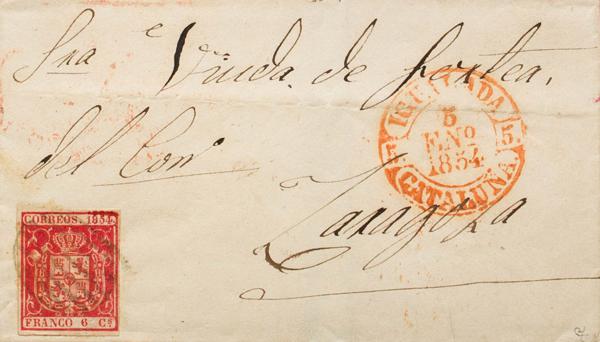 Sra Viuda de Fortea,
del Como
Zaragoza
IGUALADA
5
ENO
1854
5 5
CATALUÑA
CORREOS. 1854.
FRANCO 6 Cs